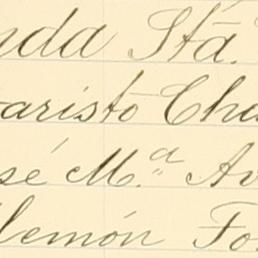 nda Stā.
aristo Cha
sé M.ª Av
lemón Fo